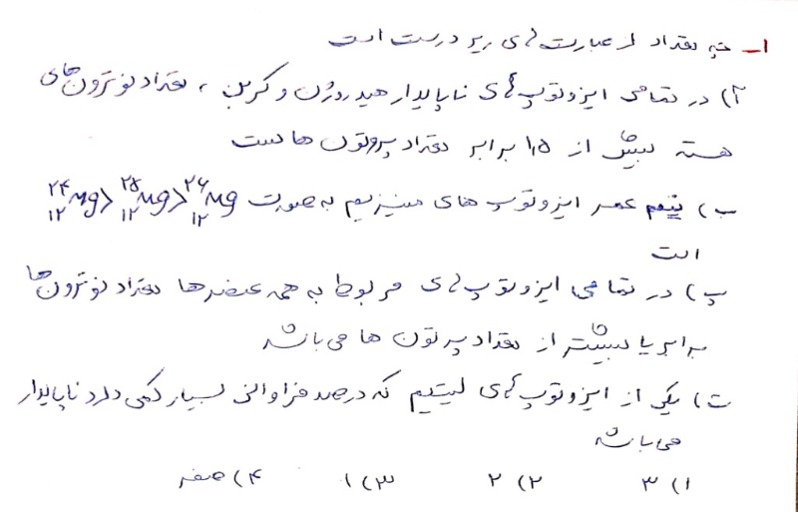 ۱- چه تعداد از عبارت های زیر درست است
۲) در تمامی ایزوتوپ های ناپایدار هیدروژن و کربن ، تعداد نوترون های
هسته بیش از ۱٫۵ برابر تعداد پروتون ها است
ب) نیم عمر ایزوتوپ های منیزیم به صورت ²⁶₁₂Mg<²⁵₁₂Mg<²⁴₁₂Mg
است
پ) در تمامی ایزوتوپ های مربوط به همه عنصرها تعداد نوترون ها
برابر یا بیشتر از تعداد پرتون ها می باشد
ت) یکی از ایزوتوپ های لیتیم که درصد فراوانی بسیار کمی دارد ناپایدار
می باشد
۱) ۳ ۲) ۲ ۳) ۱ ۴) صفر